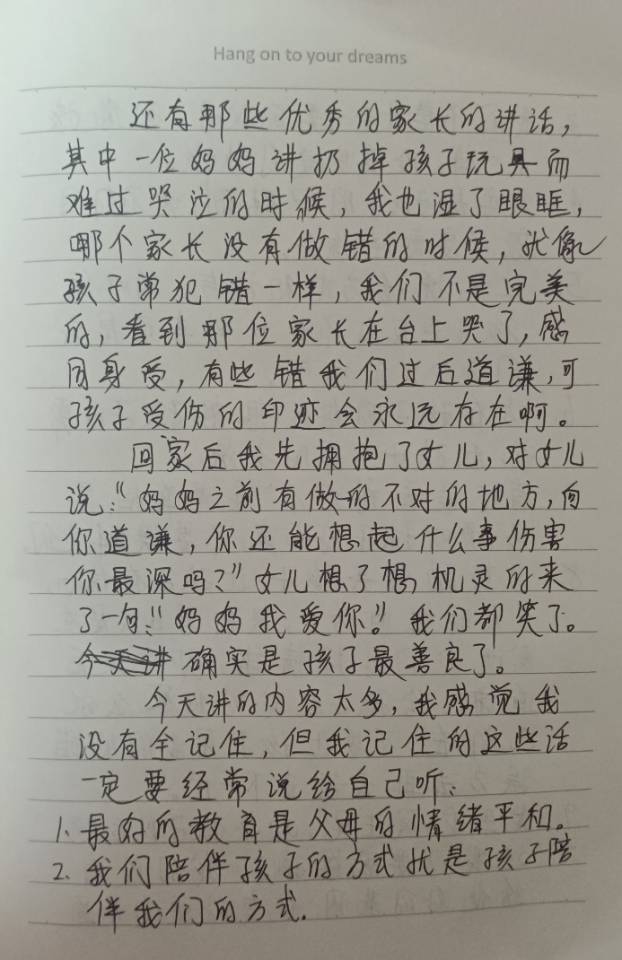 Hang on to your dreams
还有那些优秀的家长的讲话,
其中一位妈妈讲扔掉孩子玩具而
难过哭泣的时候,我也湿了眼眶,
哪个家长没有做错的时候,就像
孩子常犯错一样,我们不是完美
的,看到那位家长在台上哭了,感
同身受,有些错我们过后道谦,可
孩子受伤的印迹会永远存在啊。
回家后我先拥抱了女儿,对女儿
说:“妈妈之前有做的不对的地方,向
你道谦,你还能想起什么事伤害
你最深吗?”女儿想了想机灵的来
了一句:“妈妈我爱你。”我们都笑了。
确实是孩子最善良了。
今天讲的内容太多,我感觉我
没有全记住,但我记住的这些话
一定要经常说给自己听:
1. 最好的教育是父母的情绪平和。
2. 我们陪伴孩子的方式就是孩子陪
伴我们的方式.